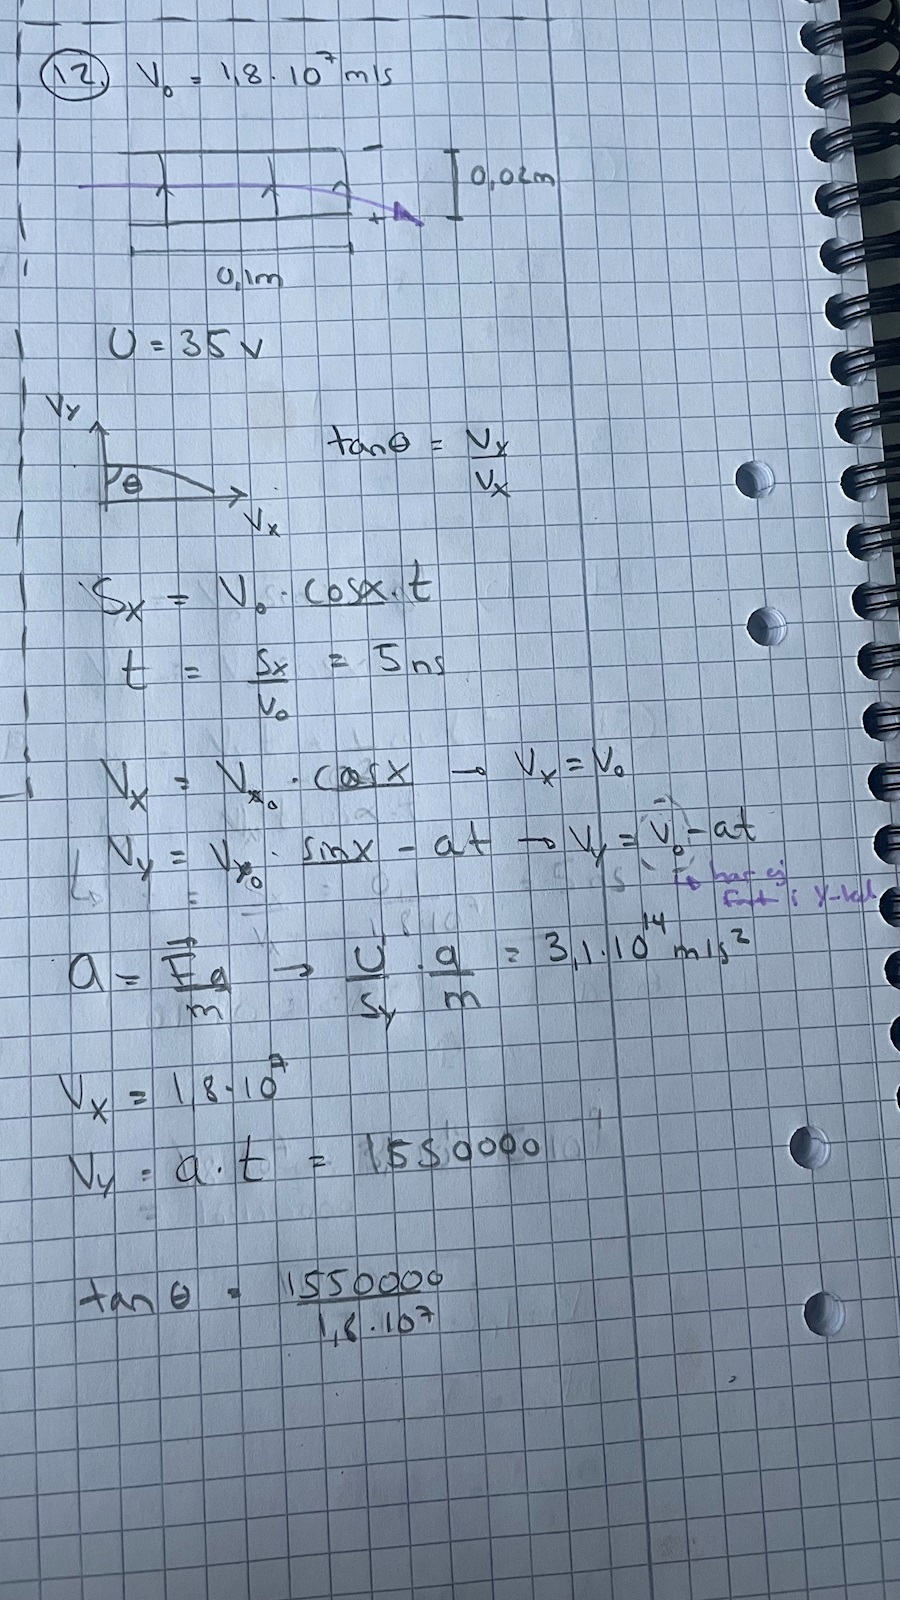 12. V₀ = 1,8 · 10⁷ m/s
-
0,02m
+
0,1m
U = 35 V
Vy
tanθ = Vy/Vx
θ
Vx
Sx = V₀ · cosx · t
t = Sx/V₀ = 5 ns
Vx = Vx₀ · cosx → Vx = V₀
Vy = Vy₀ · sinx - at → Vy = V₀ - at
har ej
fart i y-led
a = Eq/m → U/Sy · q/m = 3,1 · 10¹⁴ m/s²
Vx = 1,8 · 10⁷
Vy = a · t = 1550000
tan θ = 1550000/1,8 · 10⁷